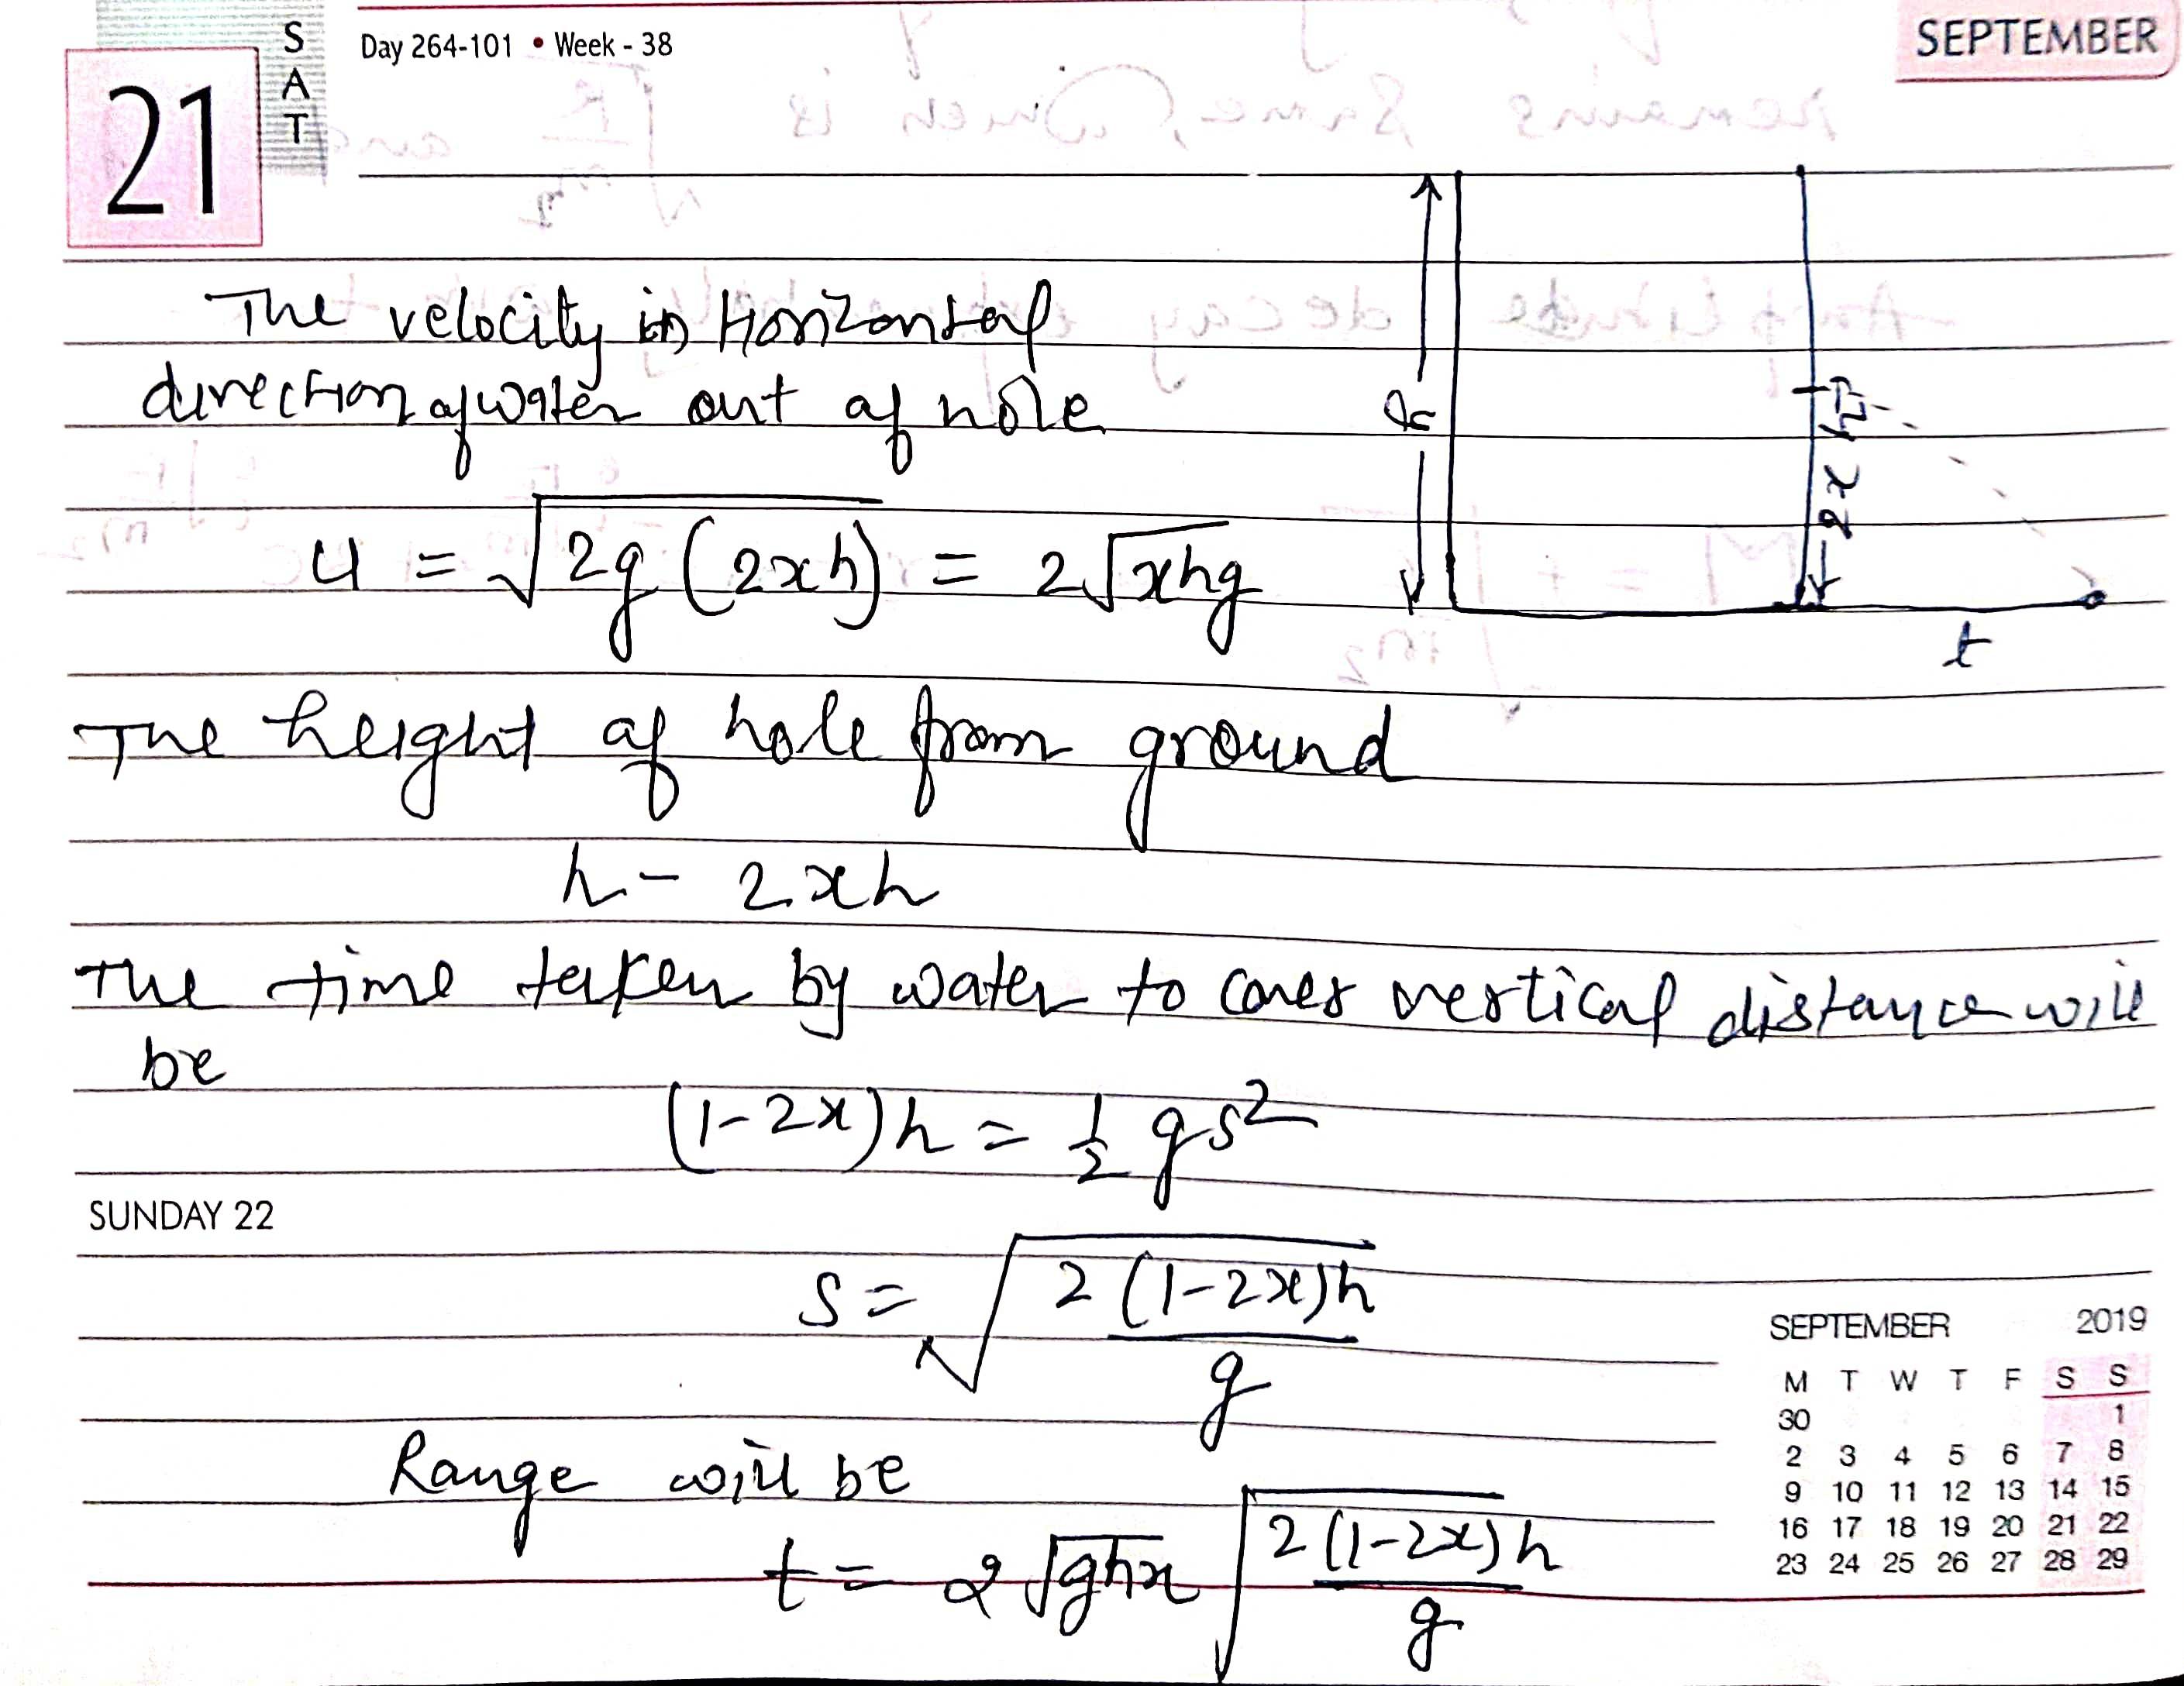 21
SAT
Day 264-101 • Week - 38
SEPTEMBER
The velocity in Horizontal
direction of water out of hole
u = √2g (2xh) = 2√xhg
h
2x
t
The height of hole from ground
h - 2xh
The time taken by water to cover vertical distance will
be
(1-2x)h = 1/2 gs²
SUNDAY 22
s = √2(1-2x)h/g
Range will be
t = 2√ghx √2(1-2x)h/g
SEPTEMBER 2019
M T W T F S S
30 1
2 3 4 5 6 7 8
9 10 11 12 13 14 15
16 17 18 19 20 21 22
23 24 25 26 27 28 29